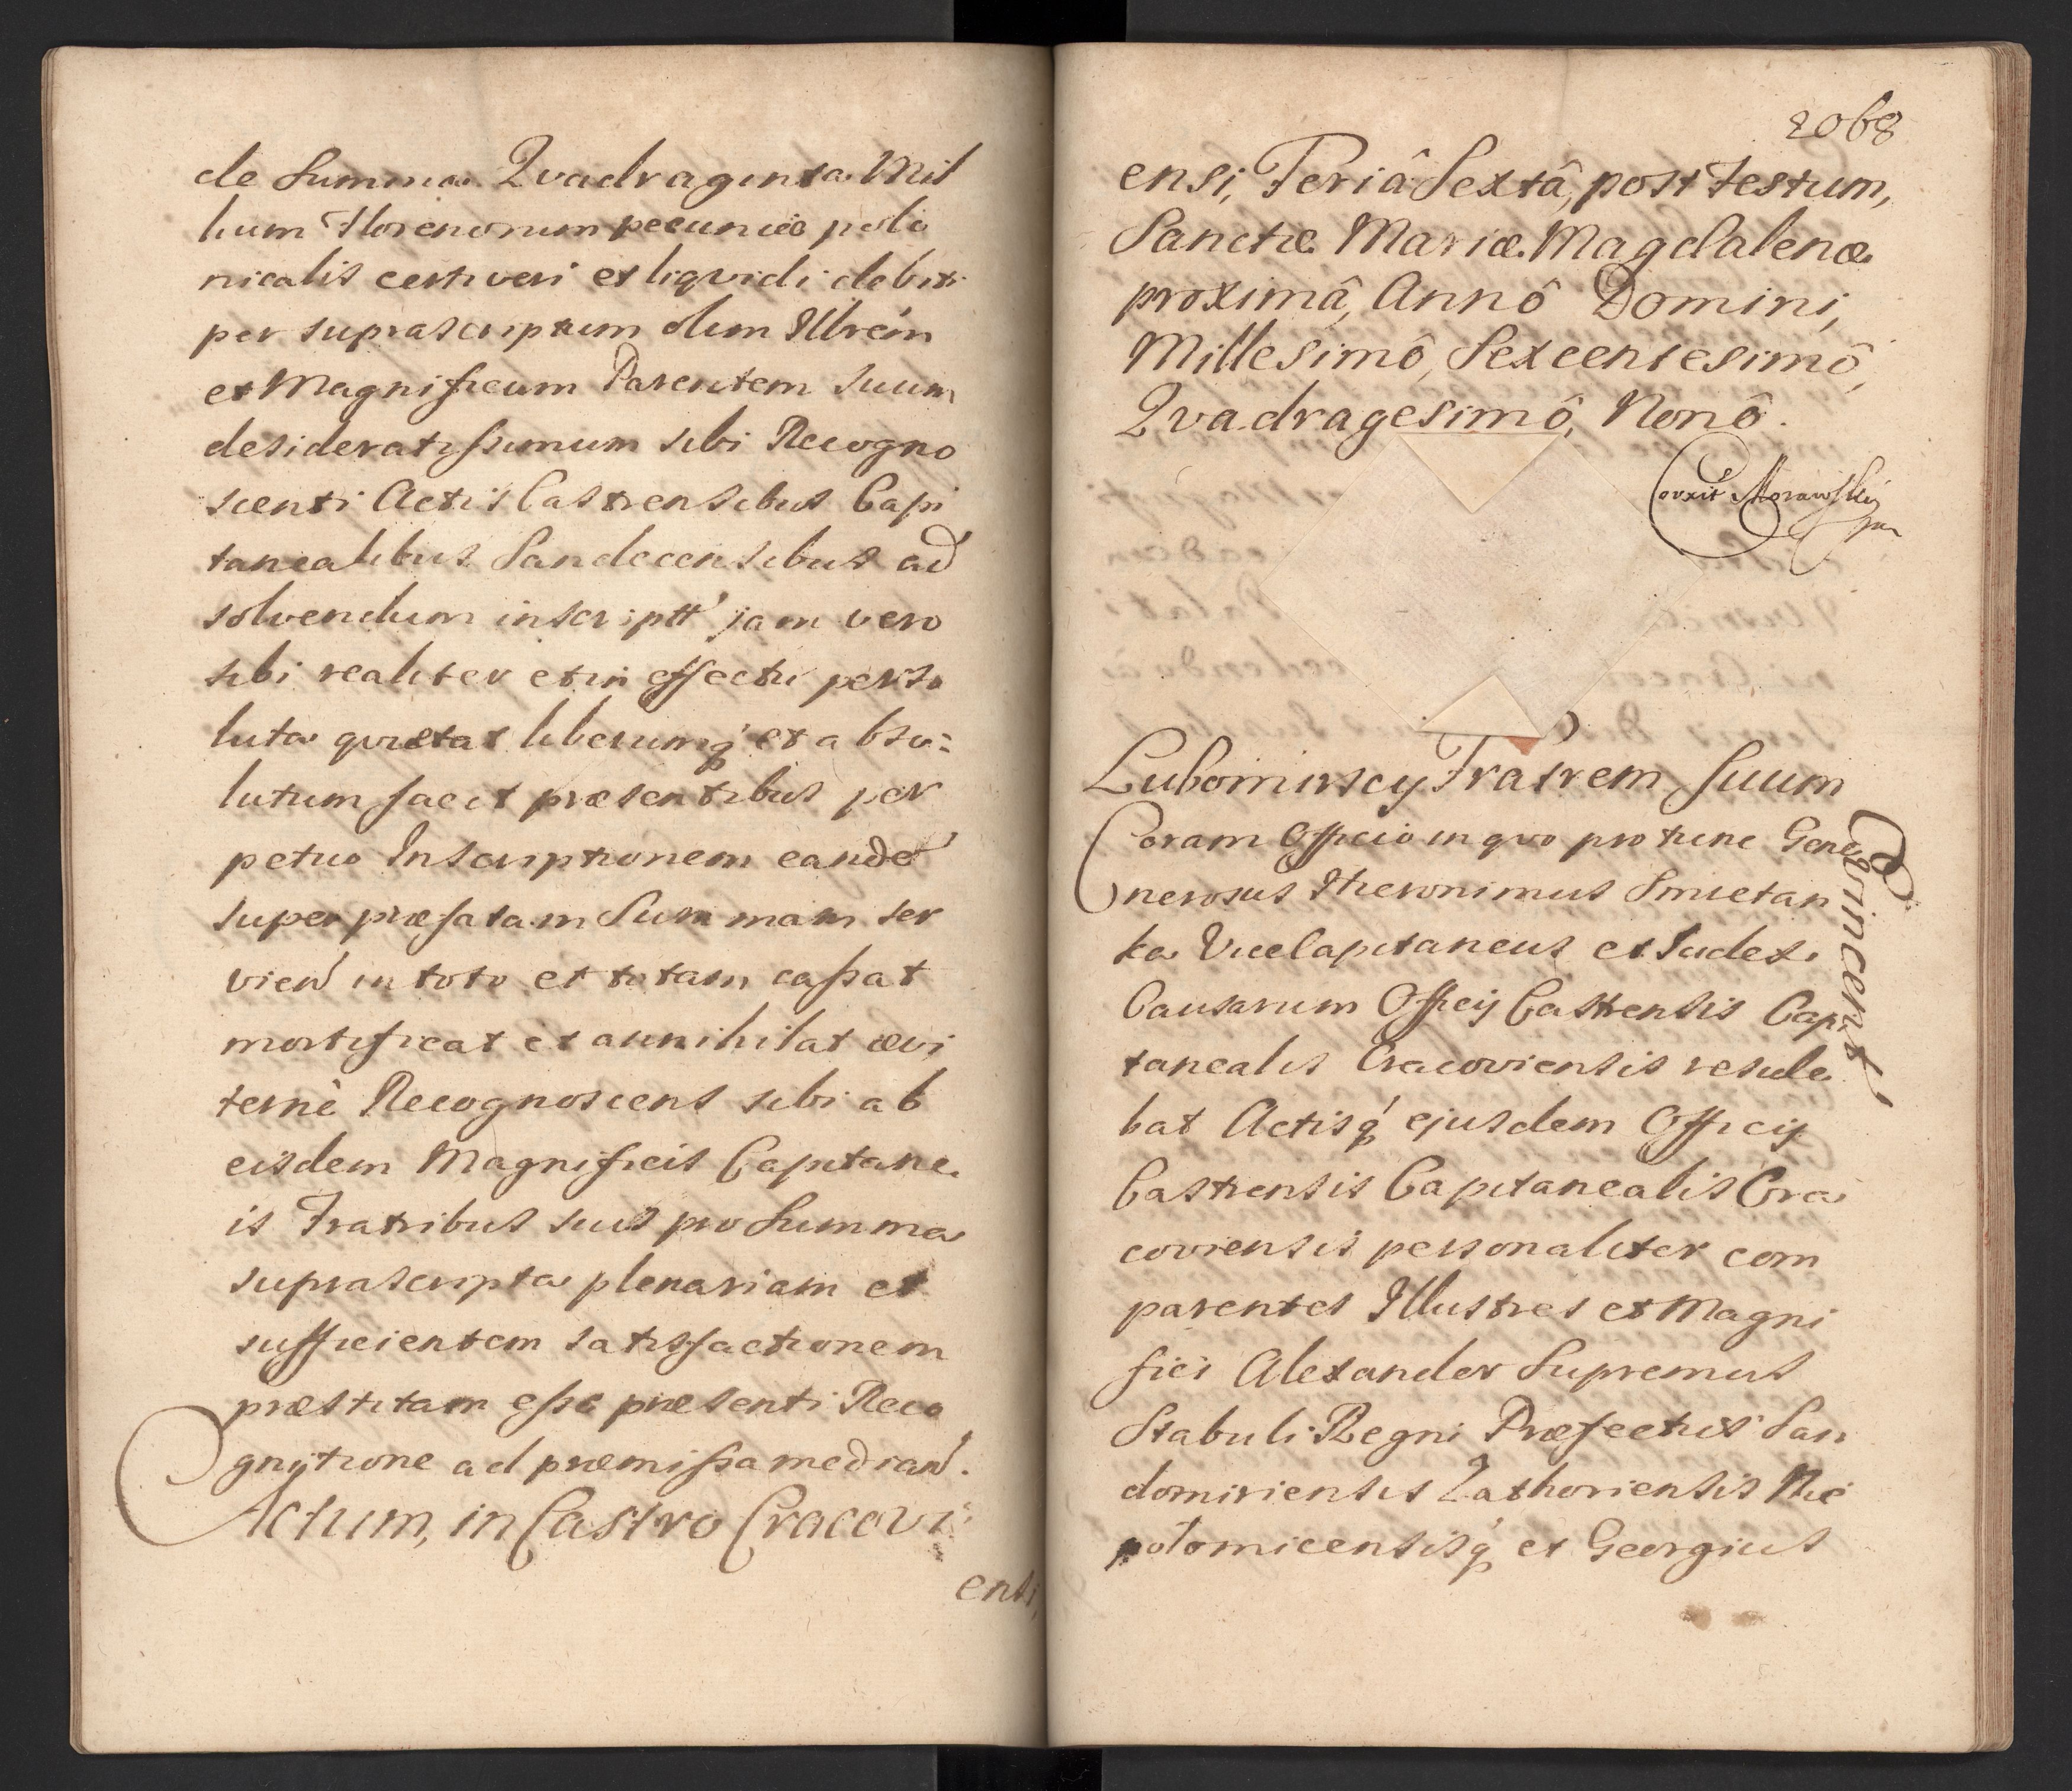 de Summa Qvadraginta Mil
lium Florenorum pecuniæ polo
nicalis certi veri et liqvidi debiti
per suprascriptum olim Illrem
et Magnificum Parentem suum
desideratissimum sibi Recogno
scenti Actis Castrensibus Capi
tanealibus Sandecensibus ad
solvendum inscriptt' jam vero
sibi realiter et in effectu perso
luta qvietat liberumq' et abso:
lutum facit præsentibus per
petuo Inscriptionem eande
super præfatam Summam ser
vien in toto et totam cassat
mortificat et annihilat ævi
ternè Recognoscens sibi ab
eisdem Magnificis Capitane
is Fratribus suis pro Summa
suprascripta plenariam et
sufficientem satisfactionem
præstitam esse præsenti Reco
gnitione ad præmissa median.
Actum, in Castro Cracovi:
ensi,
2068
ensi, Feriâ Sextâ, post Festum,
Sanctæ Mariæ Magdalenæ
proximâ, Annô Domini,
Millesimô, Sexcentesimô,
Qvadragesimô, Nonô.
Corrxit Morawskij
mp
Lubomirscy Fratrem suum
Evincent
Coram Officio in qvo pro tunc Gene
nerosus Hieronimus Smietan
ka ViceCapitaneus et Judex
Causarum Officij Castrensis Capi
tanealis Cracoviensis reside
bat Actisq' ejusdem Officij
Castrensis Capitanealis Cra
coviensis personaliter com
parentes Illustres et Magni
fici Alexander Supremus
Stabuli Regni Præfectus San
domiriensis Zathoriensis Nie
polomicensisq' et Georgius